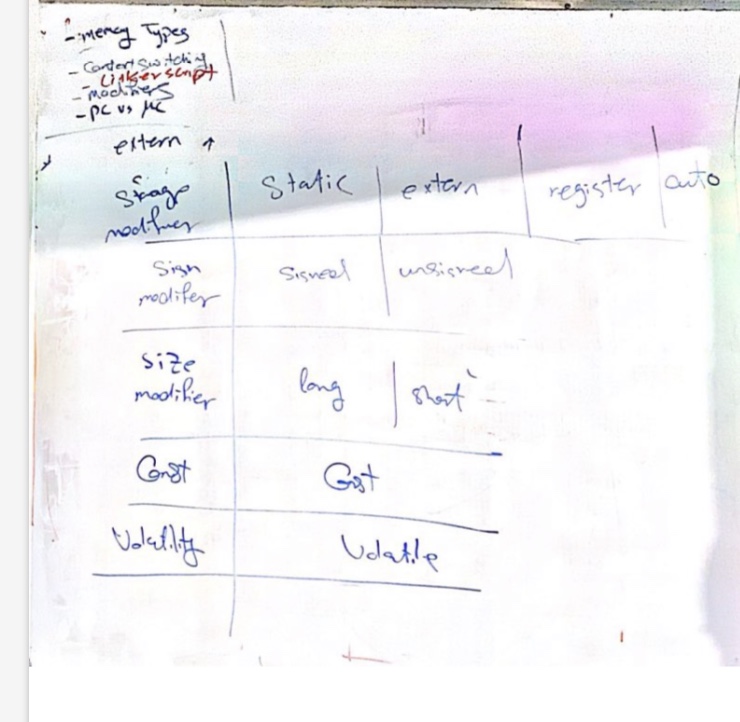 - memory Types
- Context Switching
- Linker script
- modifiers
- PC vs µC
extern ↑
Storage modifier | Static | extern | register | auto
Sign modifier | Signed | unsigned
Size modifier | long | short
Const | Const
Volatility | Volatile